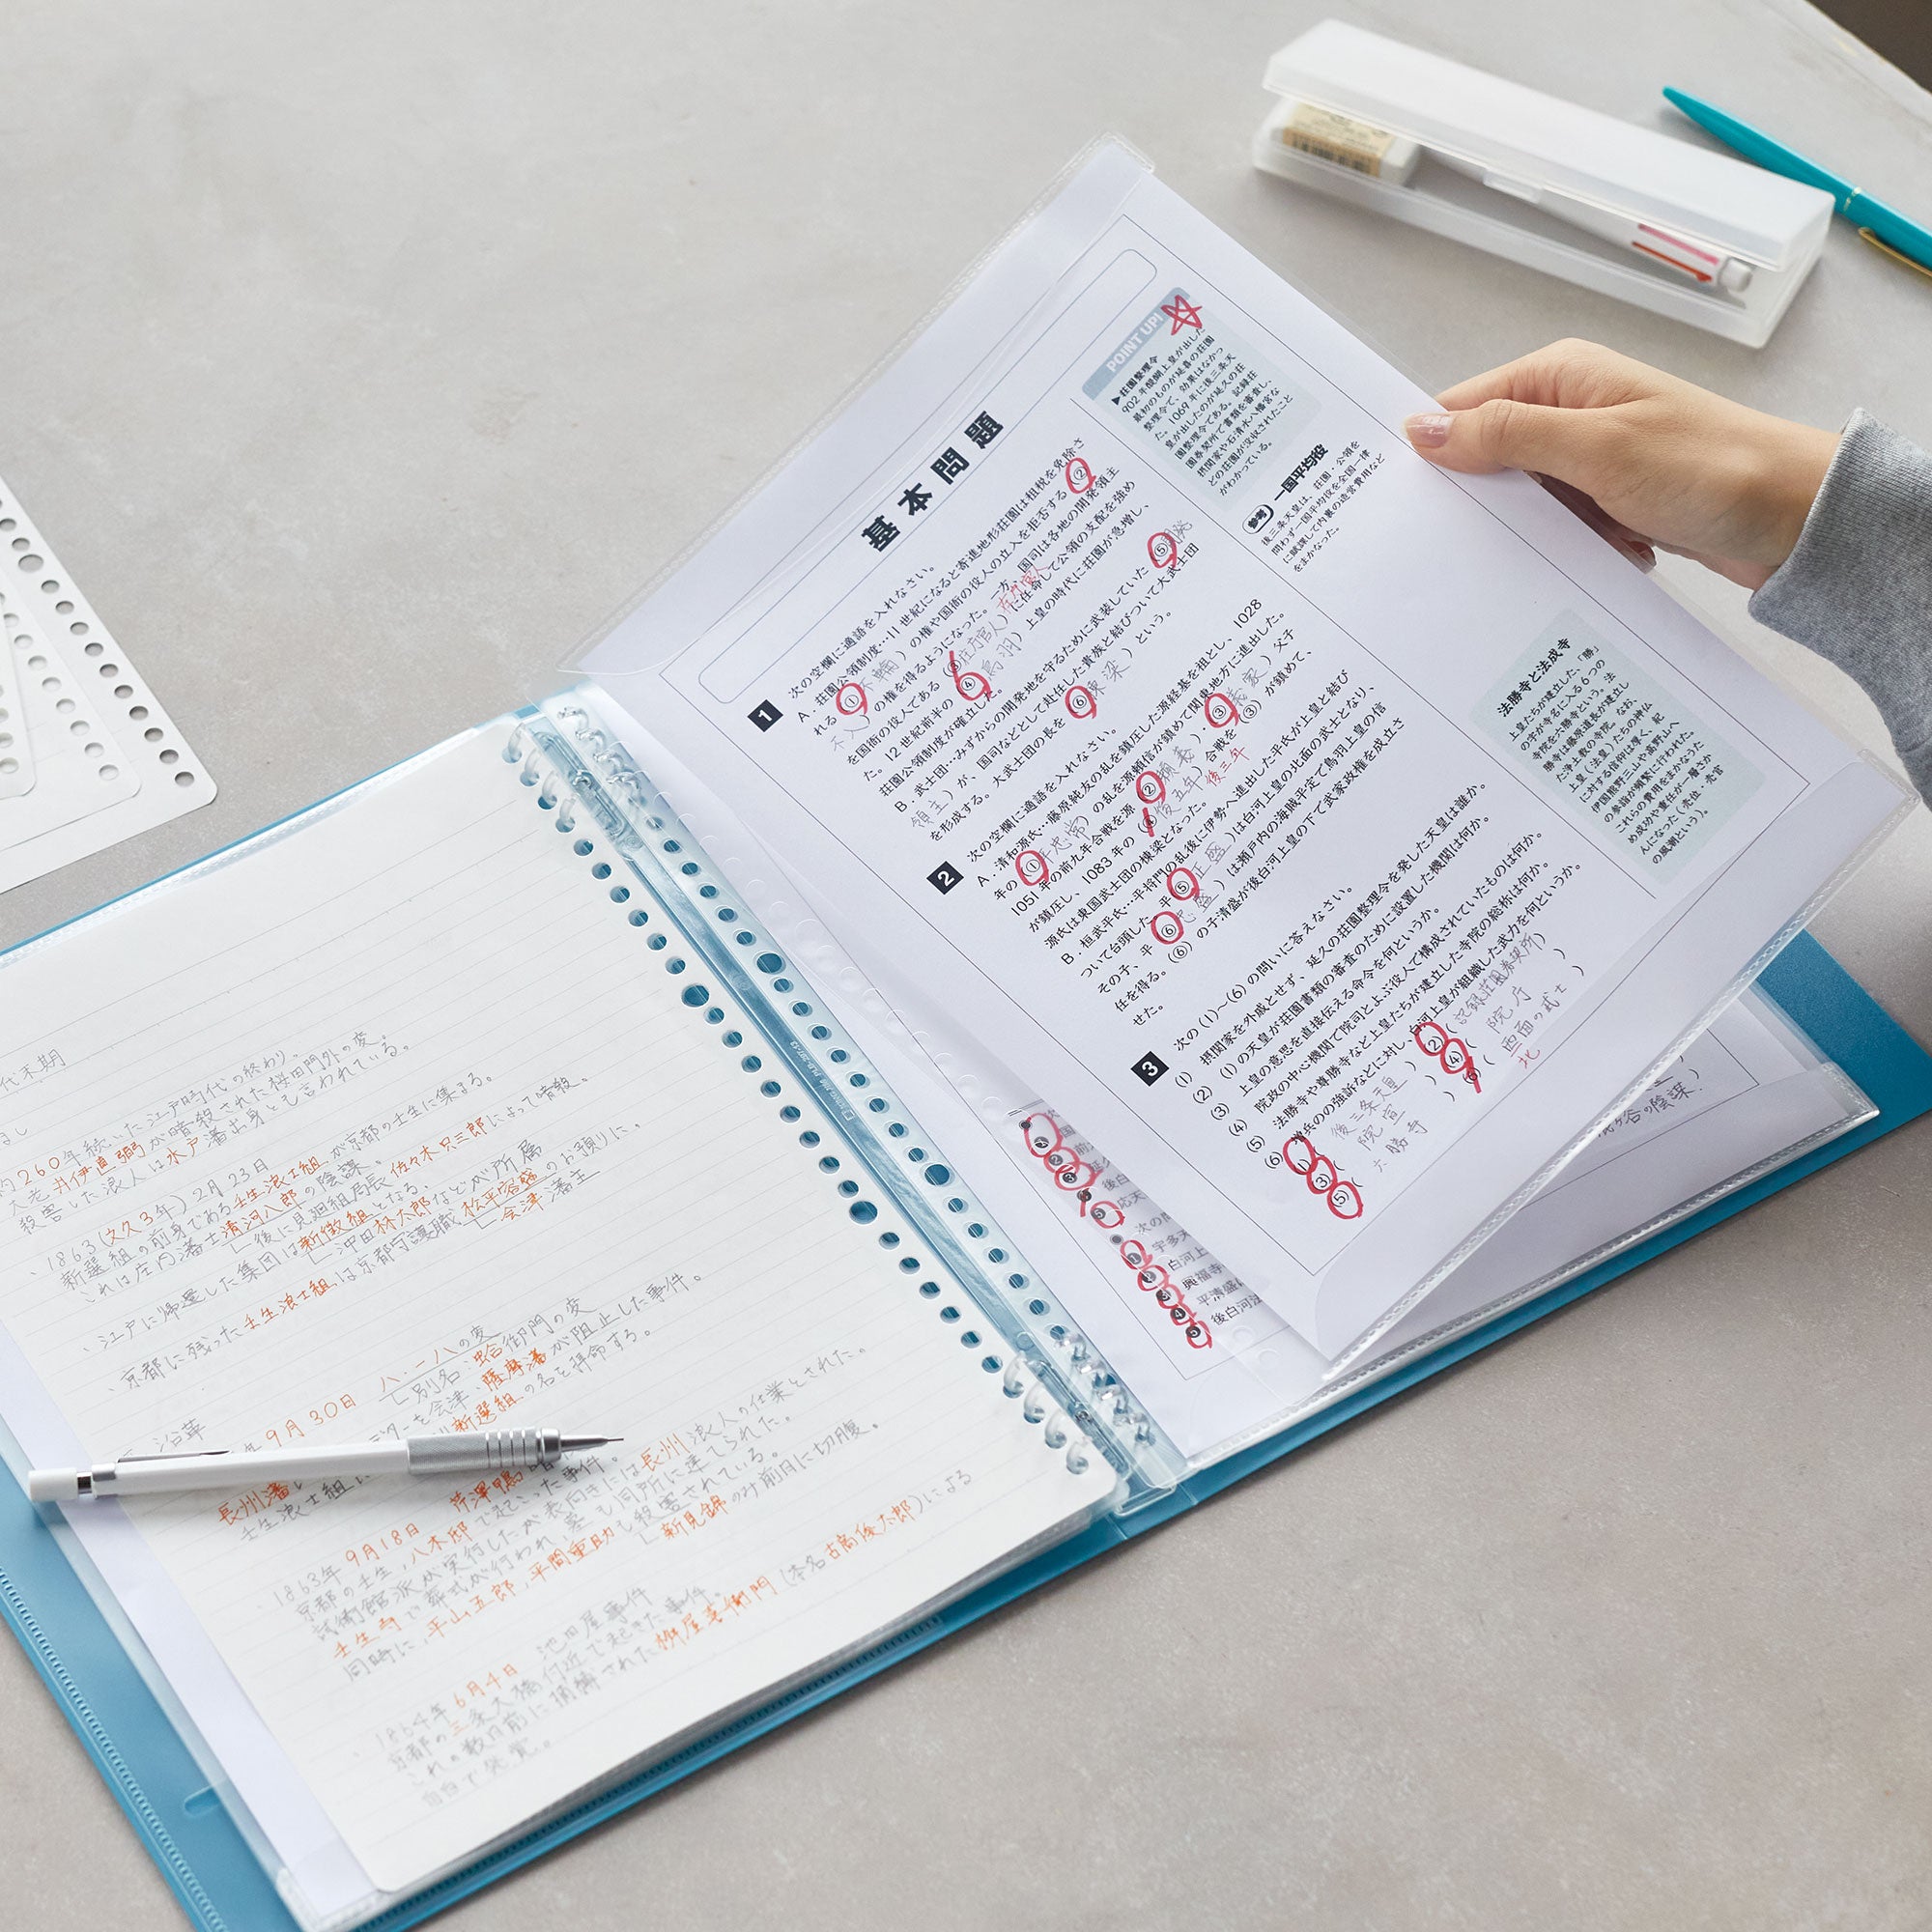 代末期
約260年続いた江戸時代の終わり。
大老井伊直弼が暗殺された桜田門外の変。
殺害した浪人は水戸藩出身とも言われている。
、1863(文久3年)2月23日
新選組の前身である壬生浪士組が京都の壬生に集まる。
これは庄内藩士清河八郎の陰謀、
後に見廻組局長佐々木只三郎によって暗殺、
、江戸に帰還した集団は新徴組となる、
沖田林太郎などが所属
、京都に残った壬生浪士組は京都守護職、松平容保のお預りに。
会津藩主
沿革
年9月30日 八.一八の変
別名、蛤御門の変
を会津、薩摩藩が阻止した事件。
新選組の名を拝命する。
長州藩
壬生浪士組
1863年9月18日 芹澤鴨
京都の壬生,八木邸で起こった事件。
試衛館派が実行したが表向きには長州浪人の仕業とされた。
壬生寺で葬式が行われ、墓も同所に建てられた。
同時に,平山五郎,平間重助も殺害されている。
新見錦のみ前日に切腹。
1864年6月4日 池田屋事件
京都の三条大橋付近で起きた事件。
これの数日前に捕縛された桝屋喜衛門(本名古高俊太郎)による
自白で発覚。
基本問題
1 次の空欄に適語を入れなさい。
A. 荘園公領制度…11世紀になると寄進地形荘園は租税を免除さ
れる(①不輸)の権や国衙の役人の立入を拒否する(②
不入)の権を得るようになった。一方、国司は各地の開発領主
を国衙の役人である(③在庁官人)に任命して公領の支配を強め
在庁官人
た。12世紀前半の(④鳥羽)上皇の時代に荘園が急増し、
荘園公領制度が確立した。
B. 武士団…みずからの開発地を守るために武装していた(⑤開発
領主)が、国司などとして赴任した貴族と結びついて大武士団
を形成する。大武士団の長を(⑥棟梁)という。
2 次の空欄に適語を入れなさい。
A. 清和源氏…藤原純友の乱を鎮圧した源経基を祖とし、1028
年の(①平忠常)の乱を源頼信が鎮めて関東地方に進出した。
1051年の前九年合戦を源(②頼義)・(③義家)父子
が鎮圧し、1083年の(④後五年)合戦を(③)が鎮めて、
後三年
源氏は東国武士団の棟梁となった。
B. 桓武平氏…平将門の乱後に伊勢へ進出した平氏が上皇と結び
ついて台頭した。平(⑤正盛)は白河上皇の北面の武士となり、
その子、平(⑥忠盛)は瀬戸内の海賊平定で鳥羽上皇の信
任を得る。(⑥)の子清盛が後白河上皇の下で武家政権を成立さ
せた。
3 次の(1)~(6)の問いに答えなさい。
(1) 摂関家を外戚とせず、延久の荘園整理令を発した天皇は誰か。
(2) (1)の天皇が荘園書類の審査のために設置した機関は何か。
(3) 上皇の意思を直接伝える命令を何というか。
(4) 院政の中心機関で院司とよぶ役人で構成されていたものは何か。
(5) 法勝寺や尊勝寺など上皇たちが建立した寺院の総称は何か。
(6) 僧兵の強訴などに対し、白河上皇が組織した武力を何というか。
(1)(後三条天皇) (2)(記録荘園券契所)
(3)(院宣) (4)(院庁)
(5)(六勝寺) (6)(西面の武士)
北
POINT UP!
▶荘園整理令
902年醍醐上皇が出した
最初のものが延喜の荘園
整理令で、効果はなかっ
た。1069年に後三条天
皇が出したのが延久の荘
園整理令である。記録荘
園券契所で書類を審査し、
摂関家や石清水八幡宮な
どの荘園が没収されたこと
がわかっている。
参考 一国平均役
後三条天皇は、荘園・公領を
問わず一国平均役を全国一律
に賦課して内裏の造営費用など
をまかなった。
法勝寺と法成寺
上皇たちが建立した、「勝」
の字が寺名に入る6つの
寺院を六勝寺という。法
勝寺は藤原道長が建立し
た浄土教の寺院。なお、
上皇(法皇)たちの神仏
に対する信仰は厚く、紀
伊国熊野三山や高野山へ
の参詣が頻繁に行われた。
これらの費用をまかなうた
め成功や重任が一層さか
んになった(売位・売官
の風潮という)。
次の
応天
後白
次の問
宇多天
白河上
興福寺
平清盛
後白河法
鹿ヶ谷の陰謀